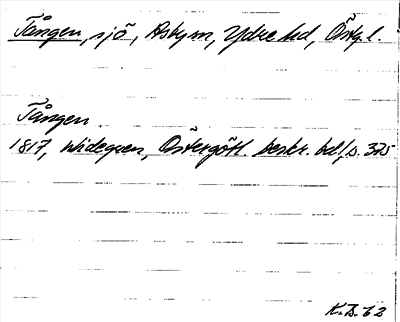 Tången, sjö, Asby sn, Ydre hd, Östg. l.
Tången
1817, Widegren, Östergötl. beskr. bd 1, s. 375
K.D. 63